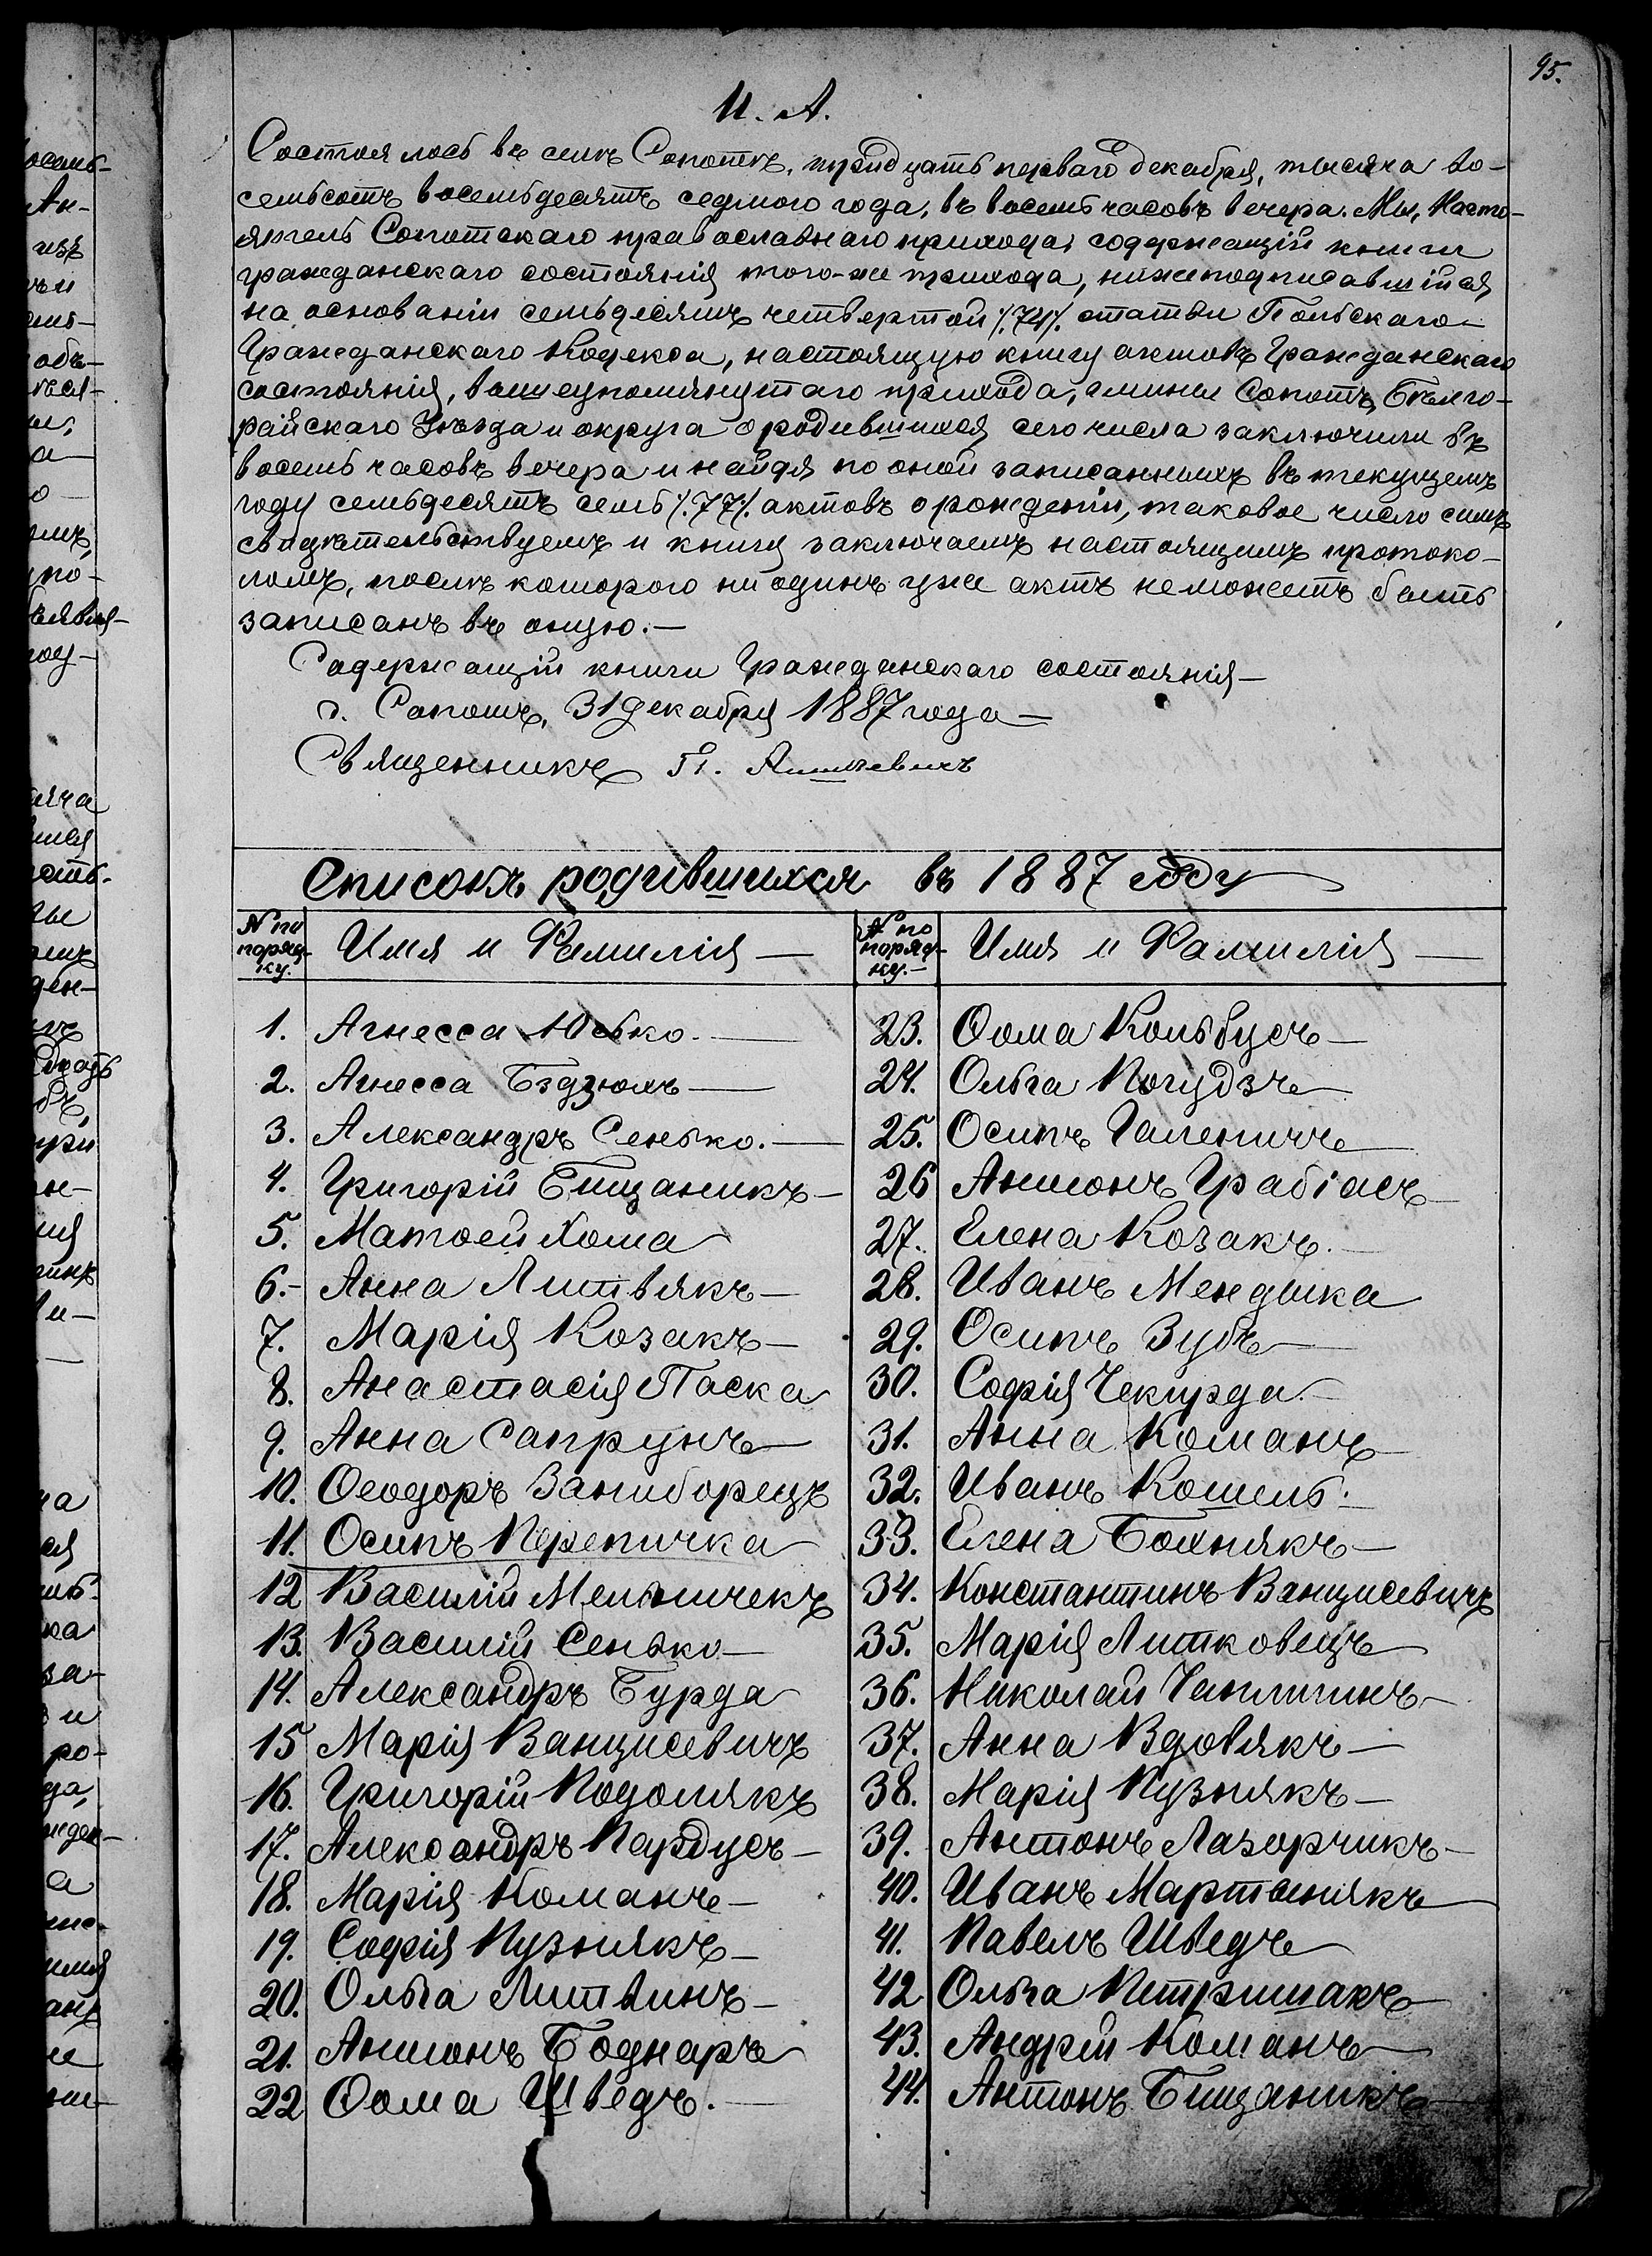 95.
И. А.
Состоялось въ селѣ Сопотѣ, тридцать перваго декабря, тысяча во-
семьсотъ восемьдесятъ седмого года, въ восемь часовъ вечера. Мы, Насто-
ятель Сопотскаго православнаго прихода, содержащій книги
гражданскаго состоянія того-же прихода, нижеподписавшійся,
на основаніи семьдесятъ четвертой /.74/. статьи Польскаго
Гражданскаго Кодекса, настоящую книгу актовъ Гражданскаго
состоянія, вышеупомянутаго прихода, гмины Сопотъ, Бѣлго-
райскаго Уѣзда и округа о родившихся сего числа заключили въ
восемь часовъ вечера и найдя по оной записанныхъ въ текущемъ
году семьдесятъ семь /.77/. актовъ о рожденіи, таковое число симъ
свидѣтельствуемъ и книгу заключаемъ настоящимъ протоко-
ломъ, послѣ которого ни одинъ уже актъ неможетъ быть
записанъ въ оную.—
Садержащій книги Гражданскаго состоянія—
с. Сопотъ, 31 декабря 1887 года—
Священникъ П.
Списокъ родившихся въ 1887 году
№ по порядку. Имя и Фамилія — № по порядку.— Имя и Фамилія —
1. Агнесса Юсько.— 23. Ѳома Кольбусъ—
2. Агнесса Бздзюхъ— 24. Ольга Погудзъ
3. Александръ Сенько.— 25. Осипъ Паленичъ
4. Григорій Бищаникъ— 26 Антонъ Грабіасъ
5. Матѳей Хома 27. Елена Козакъ.—
6.- Анна Литвякъ— 28. Иванъ Мендика
7. Марія Козакъ— 29. Осипъ Зубъ—
8. Анастасія Паска 30. Софія Чекирда.—
9. Анна Сапрунъ 31. Анна Команъ
10. Ѳеодоръ Заниборецъ 32. Иванъ Кошель.
11. Осипъ Перепичка 33. Елена Бохнякъ—
12 Василій Мельничекъ 34. Константинъ Ванцисевичъ
13. Василій Сенько— 35. Марія Литковецъ
14. Александръ Бурда 36. Николай Чаплигинъ—
15 Марія Ванцисевичъ 37. Анна Вдовякъ—
16. Григорій Подолякъ 38. Марія Пузнякъ—
17. Александръ Пардусъ— 39. Антонъ Лазорчикъ—
18. Марія Команъ— 40. Иванъ Мартынякъ
19. Софія Пузнякъ— 41. Павелъ Шведъ
20. Ольга Литвинъ— 42 Ольга Петришакъ
21. Антонъ Боднаръ 43. Андрій Команъ
22 Ѳома Шведъ.— 44. Антонъ Бищаникъ